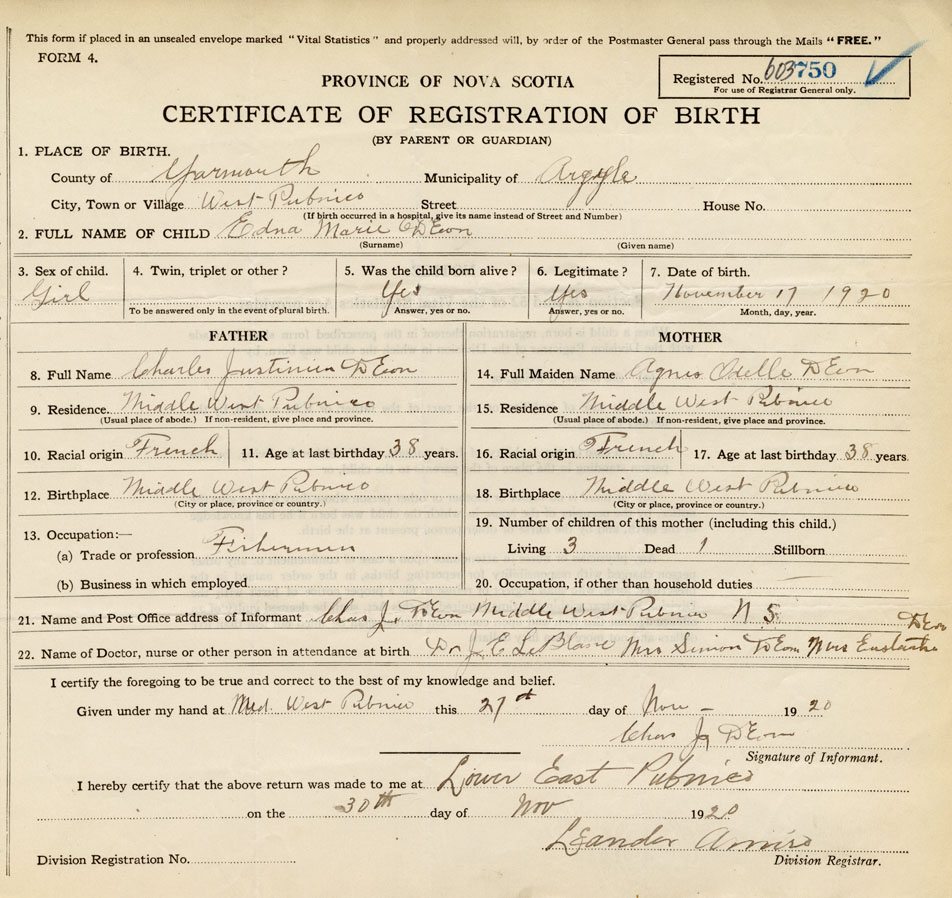 This form if placed in an unsealed envelope marked "Vital Statistics" and properly addressed will, by order of the Postmaster General pass through the Mails "FREE."
FORM 4.
Registered No. 603750
For use of Registrar General only.
PROVINCE OF NOVA SCOTIA
CERTIFICATE OF REGISTRATION OF BIRTH
(BY PARENT OR GUARDIAN)
1. PLACE OF BIRTH.
County of Yarmouth Municipality of Argyle
City, Town or Village West Pubnico Street House No.
(If birth occurred in a hospital, give its name instead of Street and Number)
2. FULL NAME OF CHILD Edna Marie DEon
(Surname) (Given name)
3. Sex of child. 4. Twin, triplet or other? 5. Was the child born alive? 6. Legitimate? 7. Date of birth.
Girl Yes Yes November 17 1920
To be answered only in the event of plural birth. Answer, yes or no. Answer, yes or no. Month, day, year.
FATHER
8. Full Name Charles Justinien DEon
9. Residence. Middle West Pubnico
(Usual place of abode.) If non-resident, give place and province.
10. Racial origin French 11. Age at last birthday 38 years.
12. Birthplace Middle West Pubnico
(City or place, province or country.)
13. Occupation:—
(a) Trade or profession Fishermen
(b) Business in which employed
MOTHER
14. Full Maiden Name Agnes Odelle DEon
15. Residence Middle West Pubnico
(Usual place of abode.) If non-resident, give place and province.
16. Racial origin French 17. Age at last birthday 38 years.
18. Birthplace Middle West Pubnico
(City or place, province or country.)
19. Number of children of this mother (including this child.)
Living 3 Dead 1 Stillborn
20. Occupation, if other than household duties
21. Name and Post Office address of Informant Chas J. DEon Middle West Pubnico N S
22. Name of Doctor, nurse or other person in attendance at birth Dr J. E. LeBlanc Mrs Simon DEon Mrs Eustache DEon
I certify the foregoing to be true and correct to the best of my knowledge and belief.
Given under my hand at Mid. West Pubnico this 27 day of Nov 1920
Chas J DEon
Signature of Informant.
I hereby certify that the above return was made to me at Lower East Pubnico
on the 30th day of Nov 1920
Leander Amiro
Division Registration No. Division Registrar.